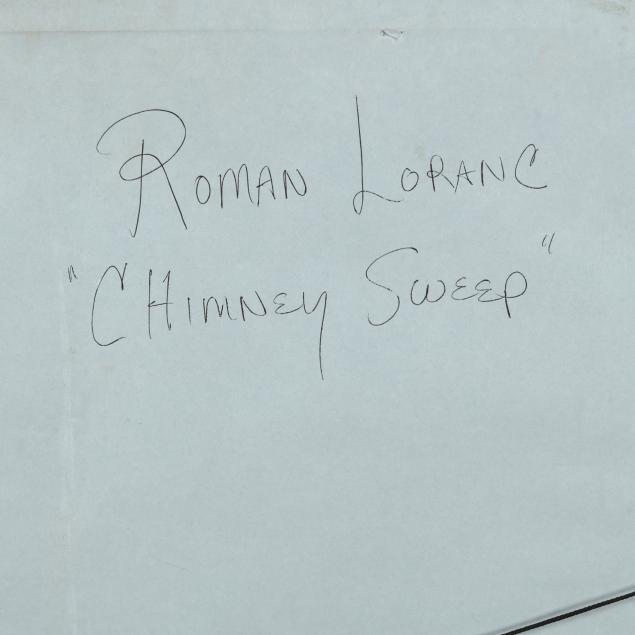 Roman Loranc
"Chimney Sweep"